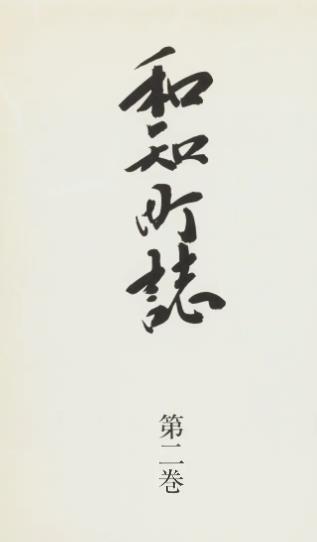 和知町誌
第二巻